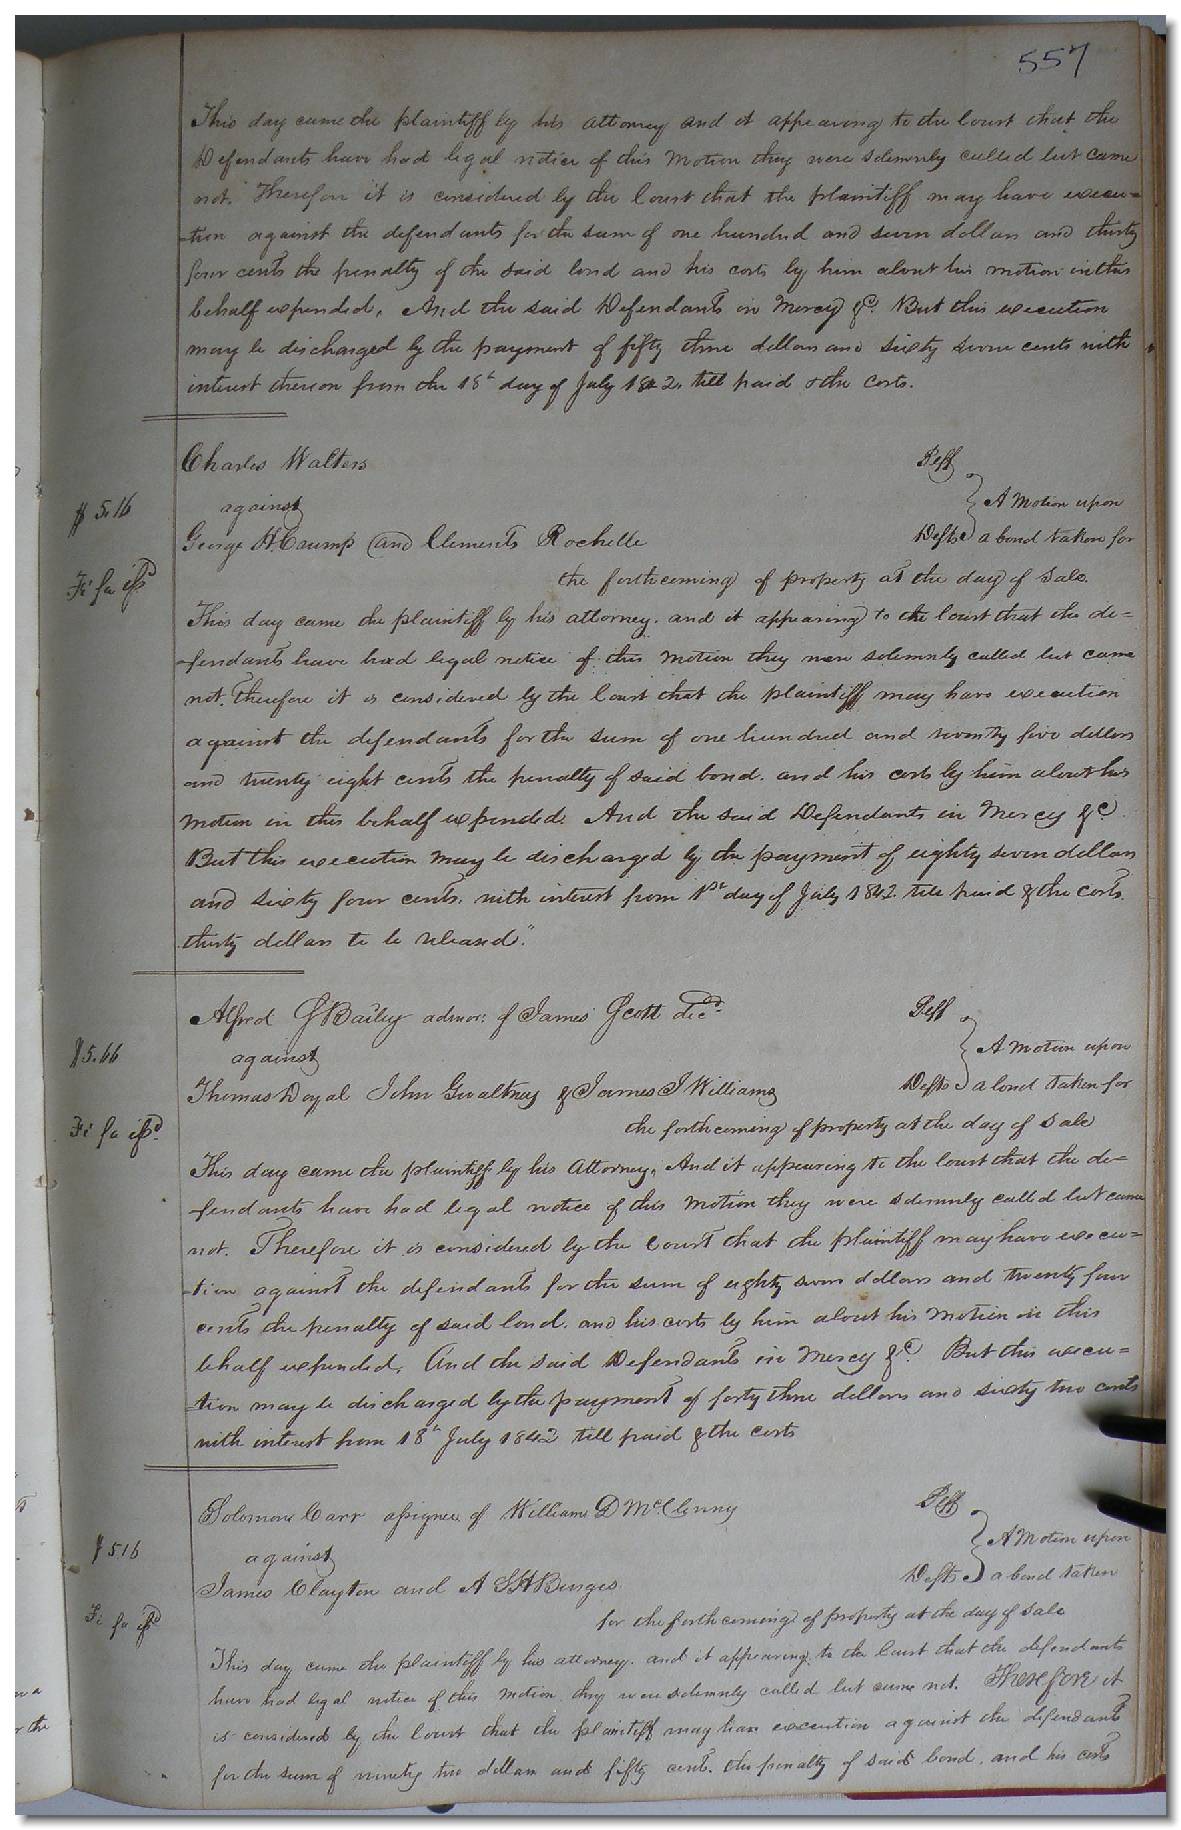 557
This day came the plaintiff by his attorney and it appearing to the Court that the
Defendants have had legal notice of this Motion they were solemnly called but came
not. Therefore it is considered by the Court that the plaintiff may have execu=
-tion against the defendants for the sum of one hundred and seven dollars and thirty
four cents the penalty of the said bond and his costs by him about his motion in this
behalf expended. And the said Defendants in Mercy &c. But this execution
may be discharged by the payment of fifty three dollars and sixty seven cents with
interest thereon from the 18th day of July 1842, till paid & the costs.
Charles Walters Pltff
$ 5.16 against A Motion upon
George H Crump and Clements Rochelle Defts a bond taken for
Fi fa issd the forthcoming of property at the day of sale.
This day came the plaintiff by his attorney. and it appearing to the Court that the de=
-fendants have had legal notice of this motion they were solemnly called but came
not. Therefore it is considered by the Court that the plaintiff may have execution
against the defendants for the sum of one hundred and seventy five dollars
and twenty eight cents the penalty of said bond. and his costs by him about his
motion in this behalf expended. And the said Defendants in Mercy &c.
But this execution may be discharged by the payment of eighty seven dollars
and sixty four cents. with interest from 1st day of July 1842 till paid & the costs.
thirty dollars to be released."
Alfred G Bailey admor: of James Scott decd. Pltff
$5.66 against A Motion upon
Thomas Doyal John Gwaltney & James J Williams Defts a bond taken for
Fi fa issd. the forthcoming of property at the day of sale
This day came the plaintiff by his Attorney. And it appearing to the Court that the de=
-fendants have had legal notice of this Motion they were solemnly called but came
not. Therefore it is considered by the Court that the plaintiff may have execu=
-tion against the defendants for the sum of eighty seven dollars and twenty four
cents the penalty of said bond. and his costs by him about his Motion in this
behalf expended. And the said Defendants in Mercy &c. But this execu=
-tion may be discharged by the payment of forty three dollars and sixty two cents
with interest from 18th July 1842 till paid & the costs
Solomon Carr assignee of William D McClenny Pltff
$ 516 against A Motion upon
James Clayton and A S H Burges Defts a bond taken
Fi fa issd for the forthcoming of property at the day of sale
This day came the plaintiff by his attorney. and it appearing to the Court that the defendants
have had legal notice of this motion they were solemnly called but came not. Therefore it
is considered by the Court that the plaintiff may have execution against the defendants
for the sum of ninety two dollars and fifty cents. the penalty of said bond. and his costs